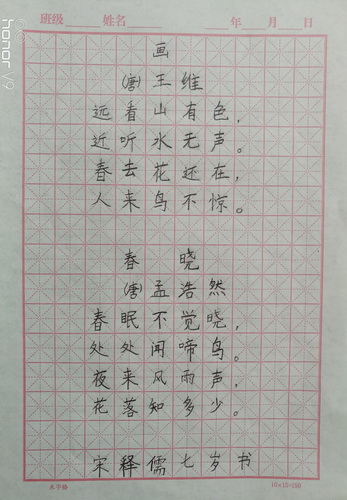 honor V9
班级 姓名 年 月 日
画
(唐)王维
远看山有色，
近听水无声。
春去花还在，
人来鸟不惊。
春晓
(唐)孟浩然
春眠不觉晓，
处处闻啼鸟。
夜来风雨声，
花落知多少。
宋释儒七岁书